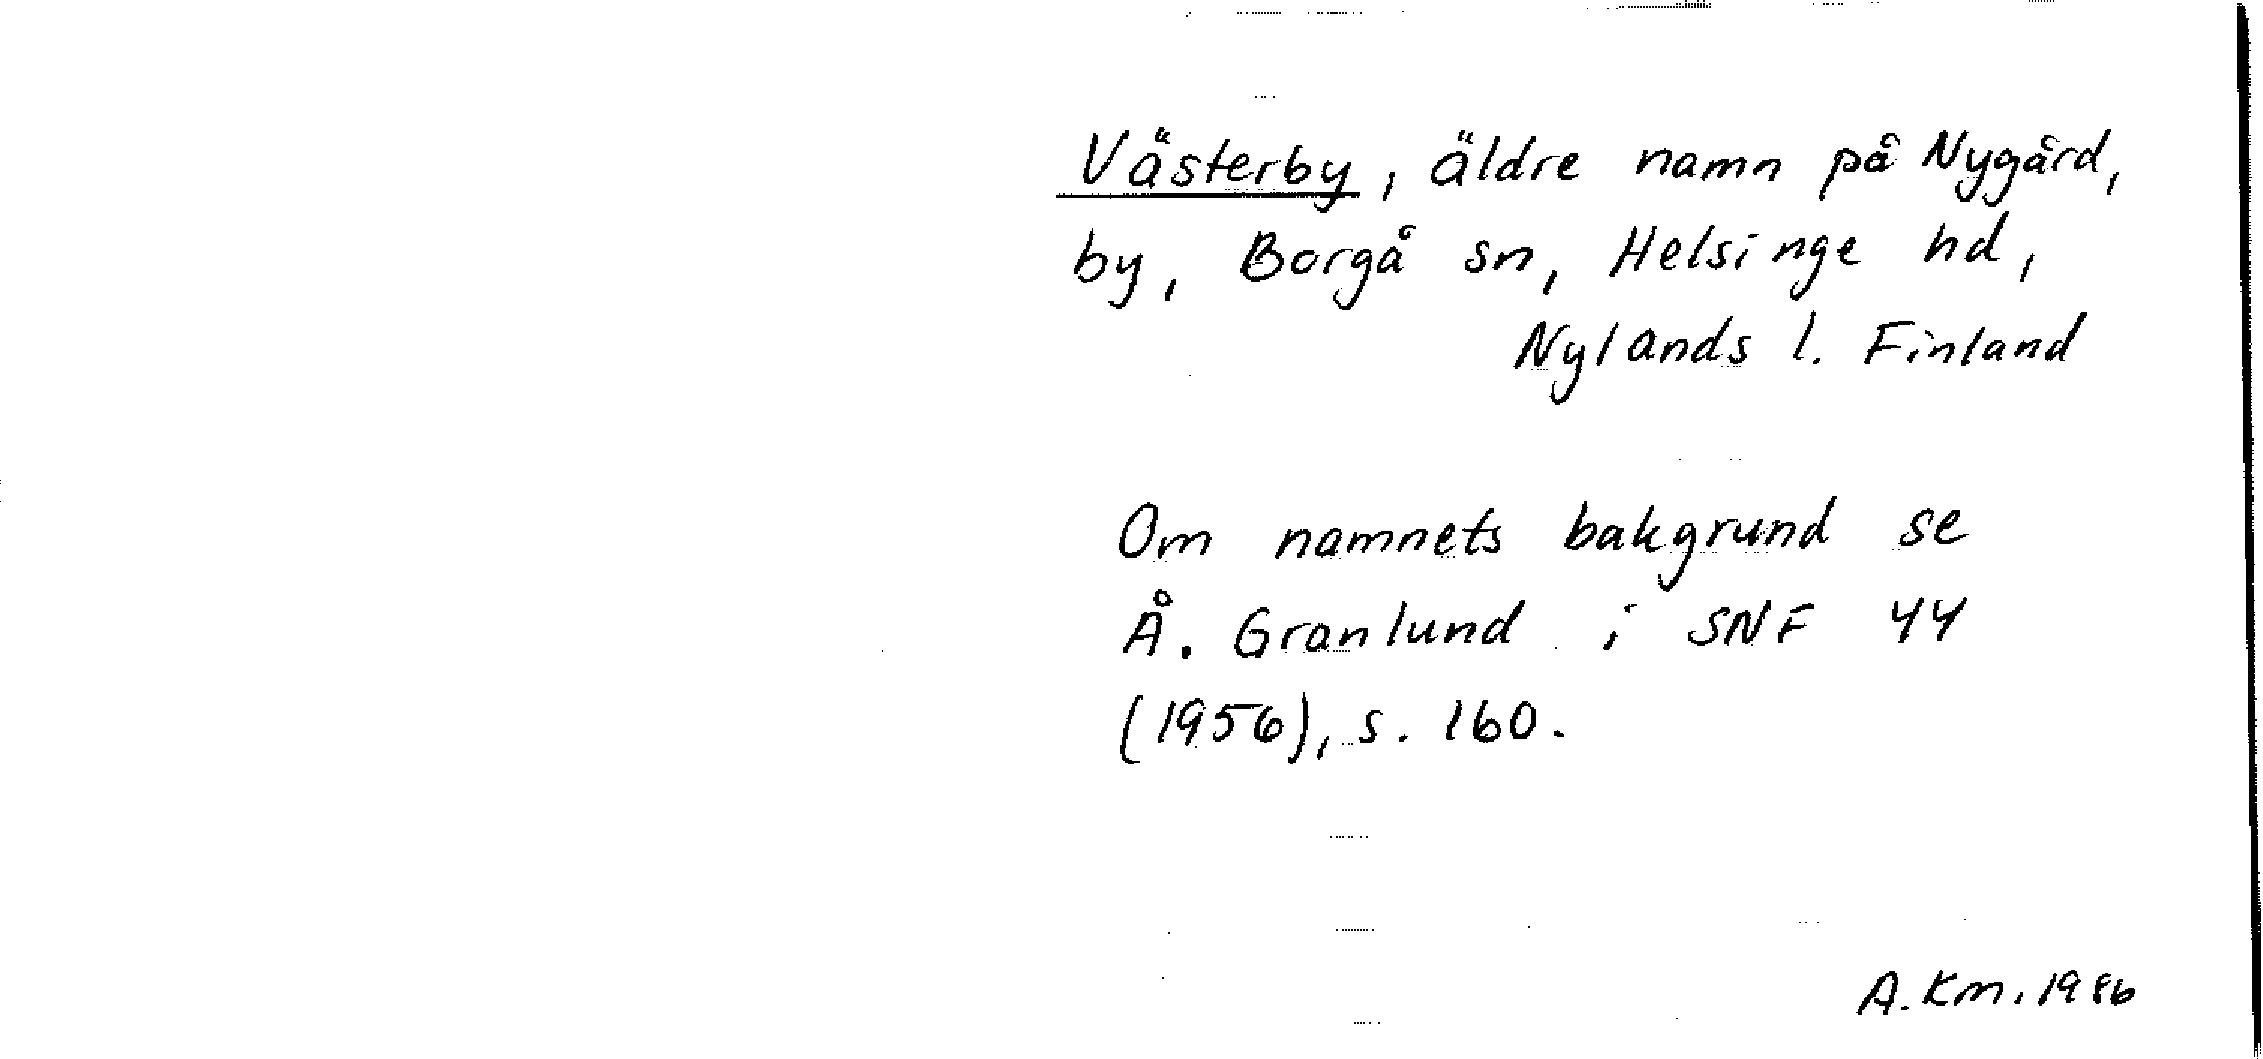 Västerby, äldre namn på Nygård,
by, Borgå sn, Helsinge hd,
Nylands l. Finland
Om namnets bakgrund se
Å. Granlund i SNF 44
(1956), s. 160.
A. Km. 1986